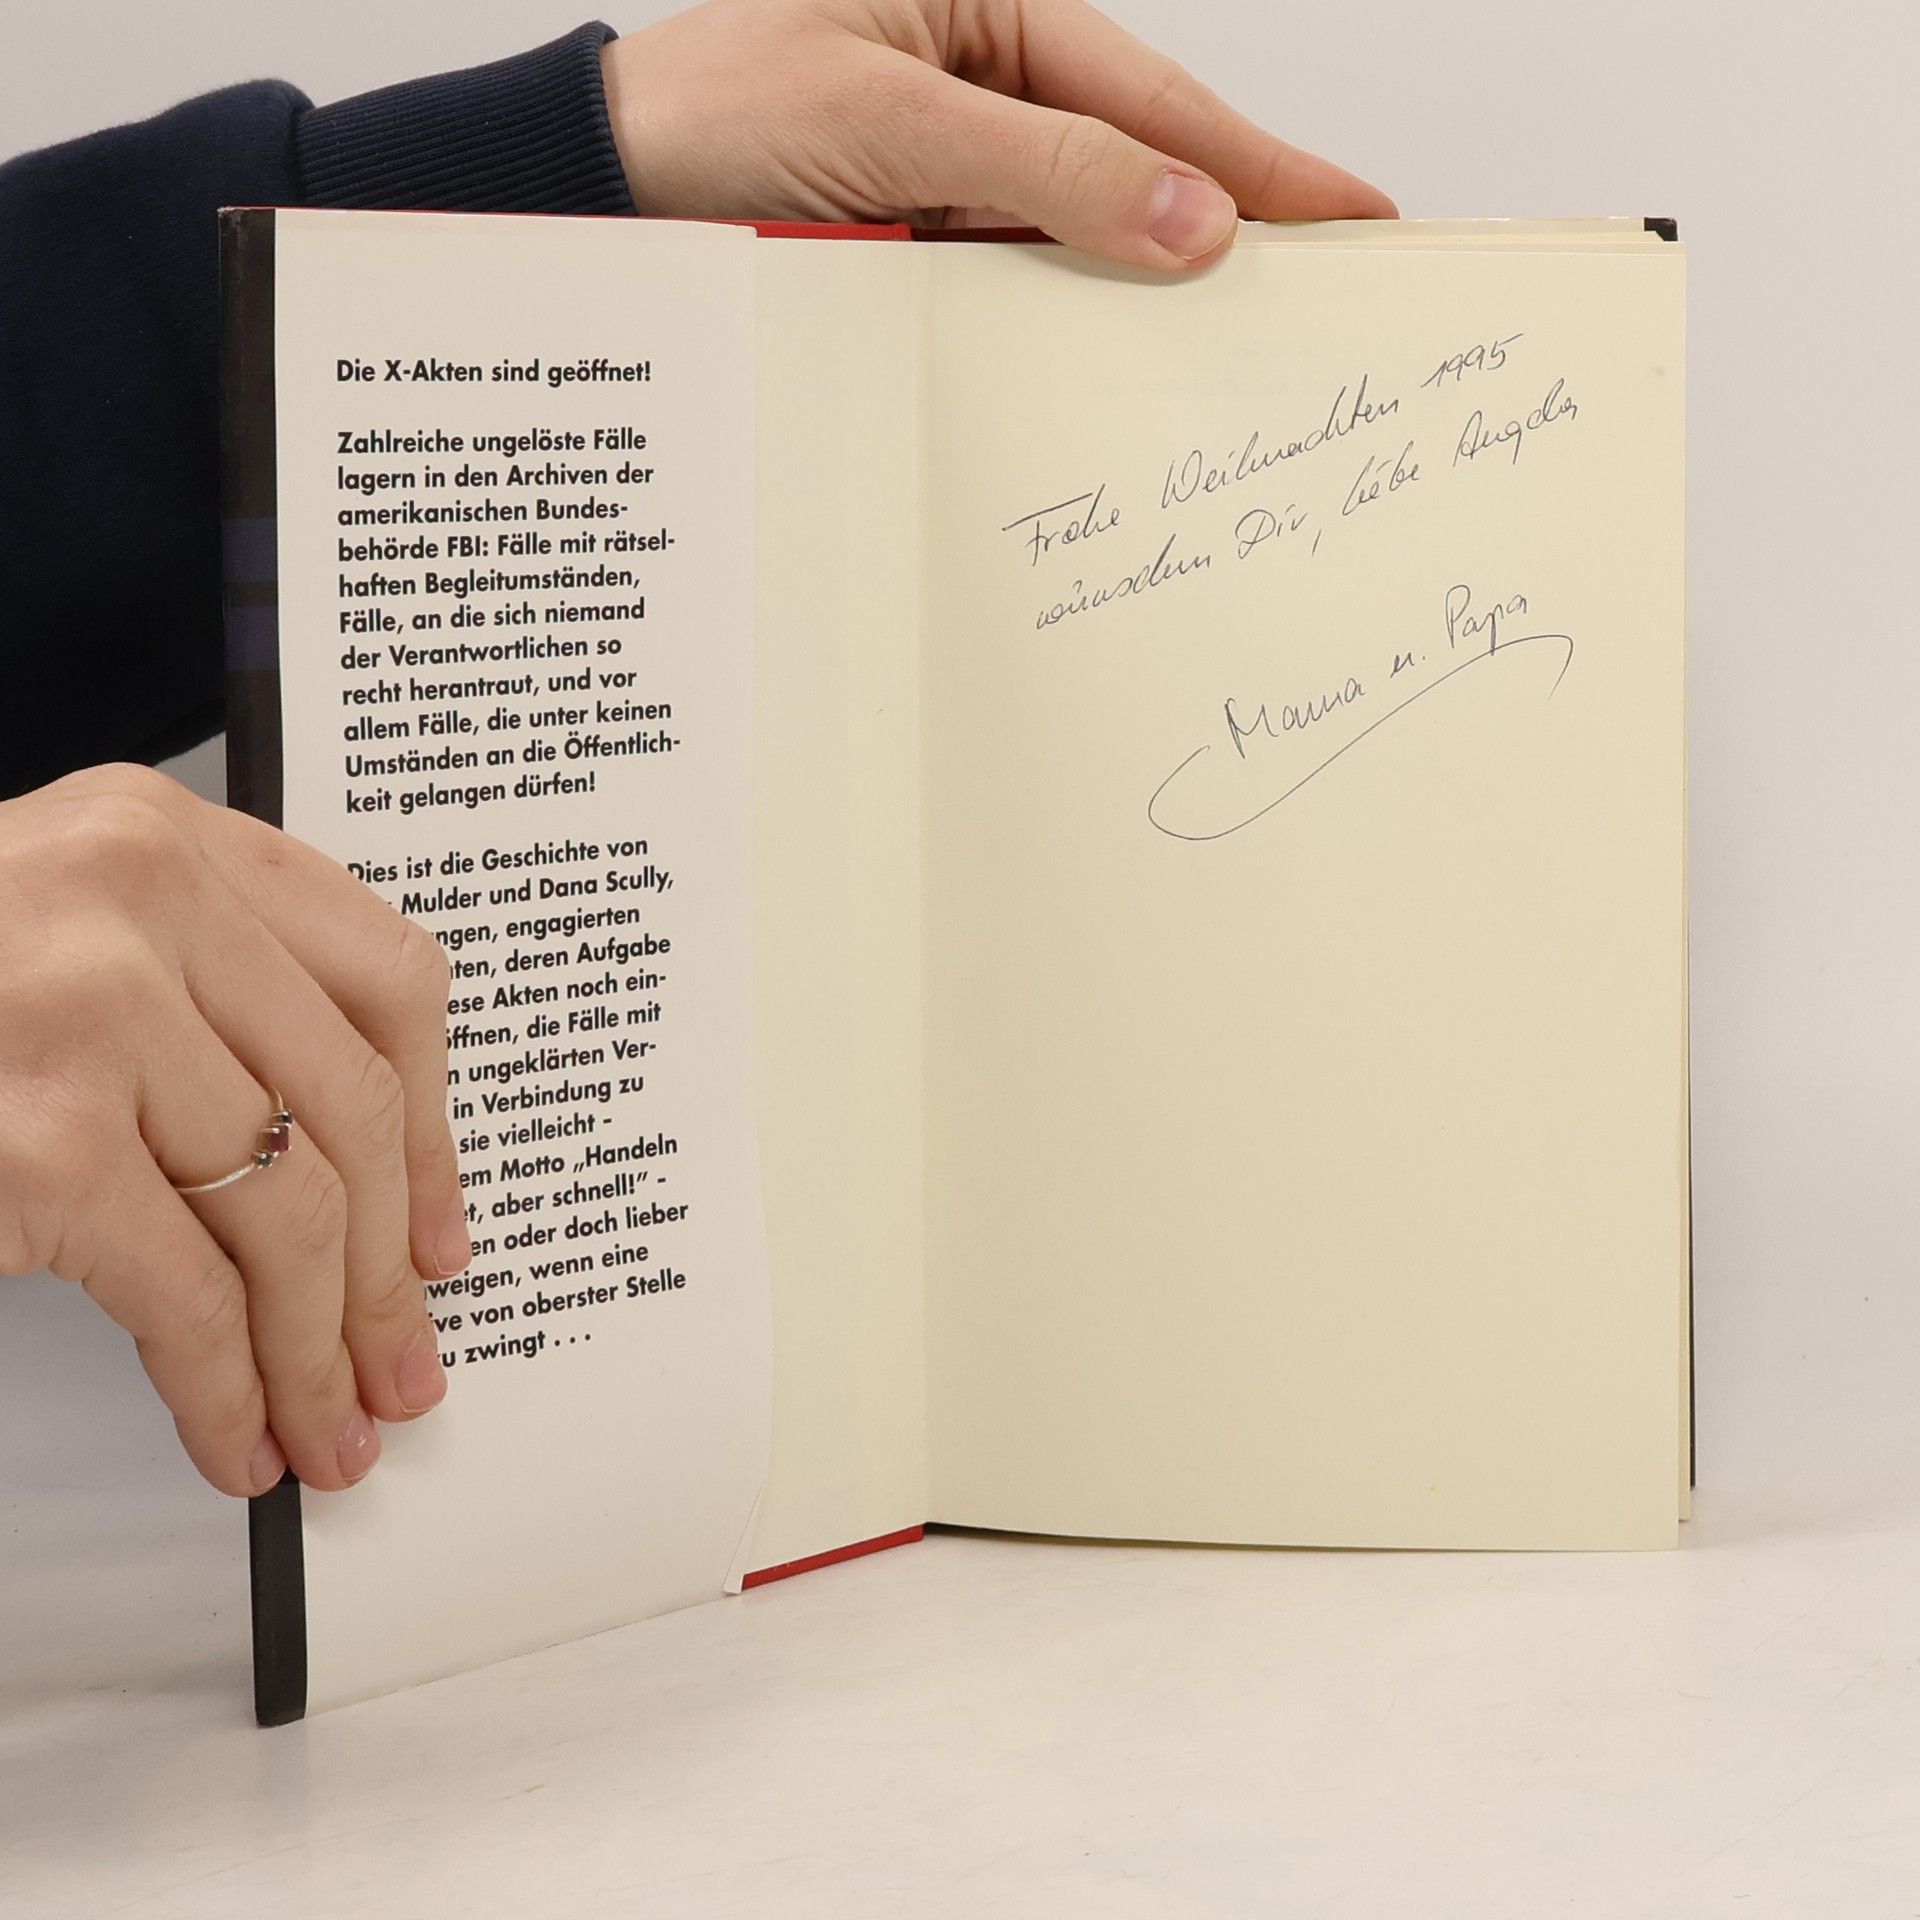 Die X-Akten sind geöffnet!
Zahlreiche ungelöste Fälle
lagern in den Archiven der
amerikanischen Bundes-
behörde FBI: Fälle mit rätsel-
haften Begleitumständen,
Fälle, an die sich niemand
der Verantwortlichen so
recht herantraut, und vor
allem Fälle, die unter keinen
Umständen an die Öffentlich-
keit gelangen dürfen!
Dies ist die Geschichte von
Mulder und Dana Scully,
ngen, engagierten
ten, deren Aufgabe
ese Akten noch ein-
öffnen, die Fälle mit
n ungeklärten Ver-
in Verbindung zu
sie vielleicht -
em Motto „Handeln
et, aber schnell!" -
en oder doch lieber
weigen, wenn eine
ive von oberster Stelle
zu zwingt . . .
Frohe Weihnachten 1995
wünschen Dir, liebe Angela
Mama u. Papa